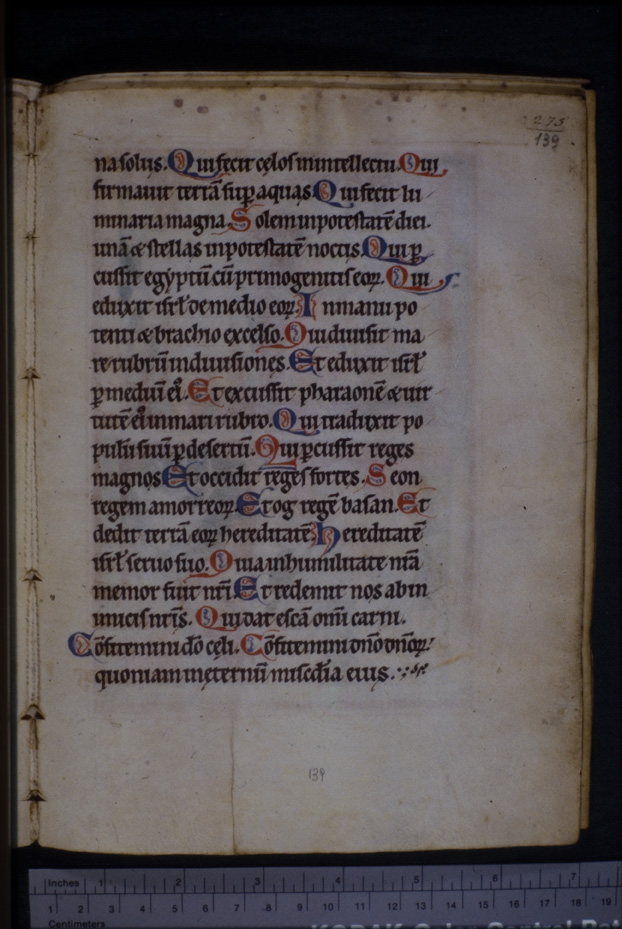 275
139
na solus. Qui fecit cęlos in intellectu. Qui
firmauit terrā sup aquas. Qui fecit lu
minaria magna. Solem in potestatē diei.
unā & stellas in potestatē noctis. Qui p
cussit egyptū cū primogenitis eoꝝ. Qui
eduxit isrl̄ de medio eoꝝ. In manu po
tenti & brachio excelso. Qui diuisit ma
re rubrū in diuisiones. Et eduxit isrl̄
ꝑ mediū eī. Et excussit pharaonē & uir
tutē eī in mari rubro. Qui traduxit po
pulū suū ꝑ desertū. Qui ꝑcussit reges
magnos Et occidit reges fortes. Seon
regem amorreoꝝ. Et og regē basan. Et
dedit terrā eoꝝ hereditatē. Hereditatē
isrl̄ seruo suo. Quia in humilitate nr̄a
memor fuit nr̄i Et redemit nos ab in
imicis nr̄is. Qui dat escā om̄i carni.
Cōfitemini dō cęli. Cōfitemini dnō dnōꝝ.
quoniam in ęternū miscd̄ia eius.
139
Inches 1 2 3 4 5 6 7
1 2 3 4 5 6 7 8 9 10 11 12 13 14 15 16 17 18 19
Centimeters
KODAK Color Control